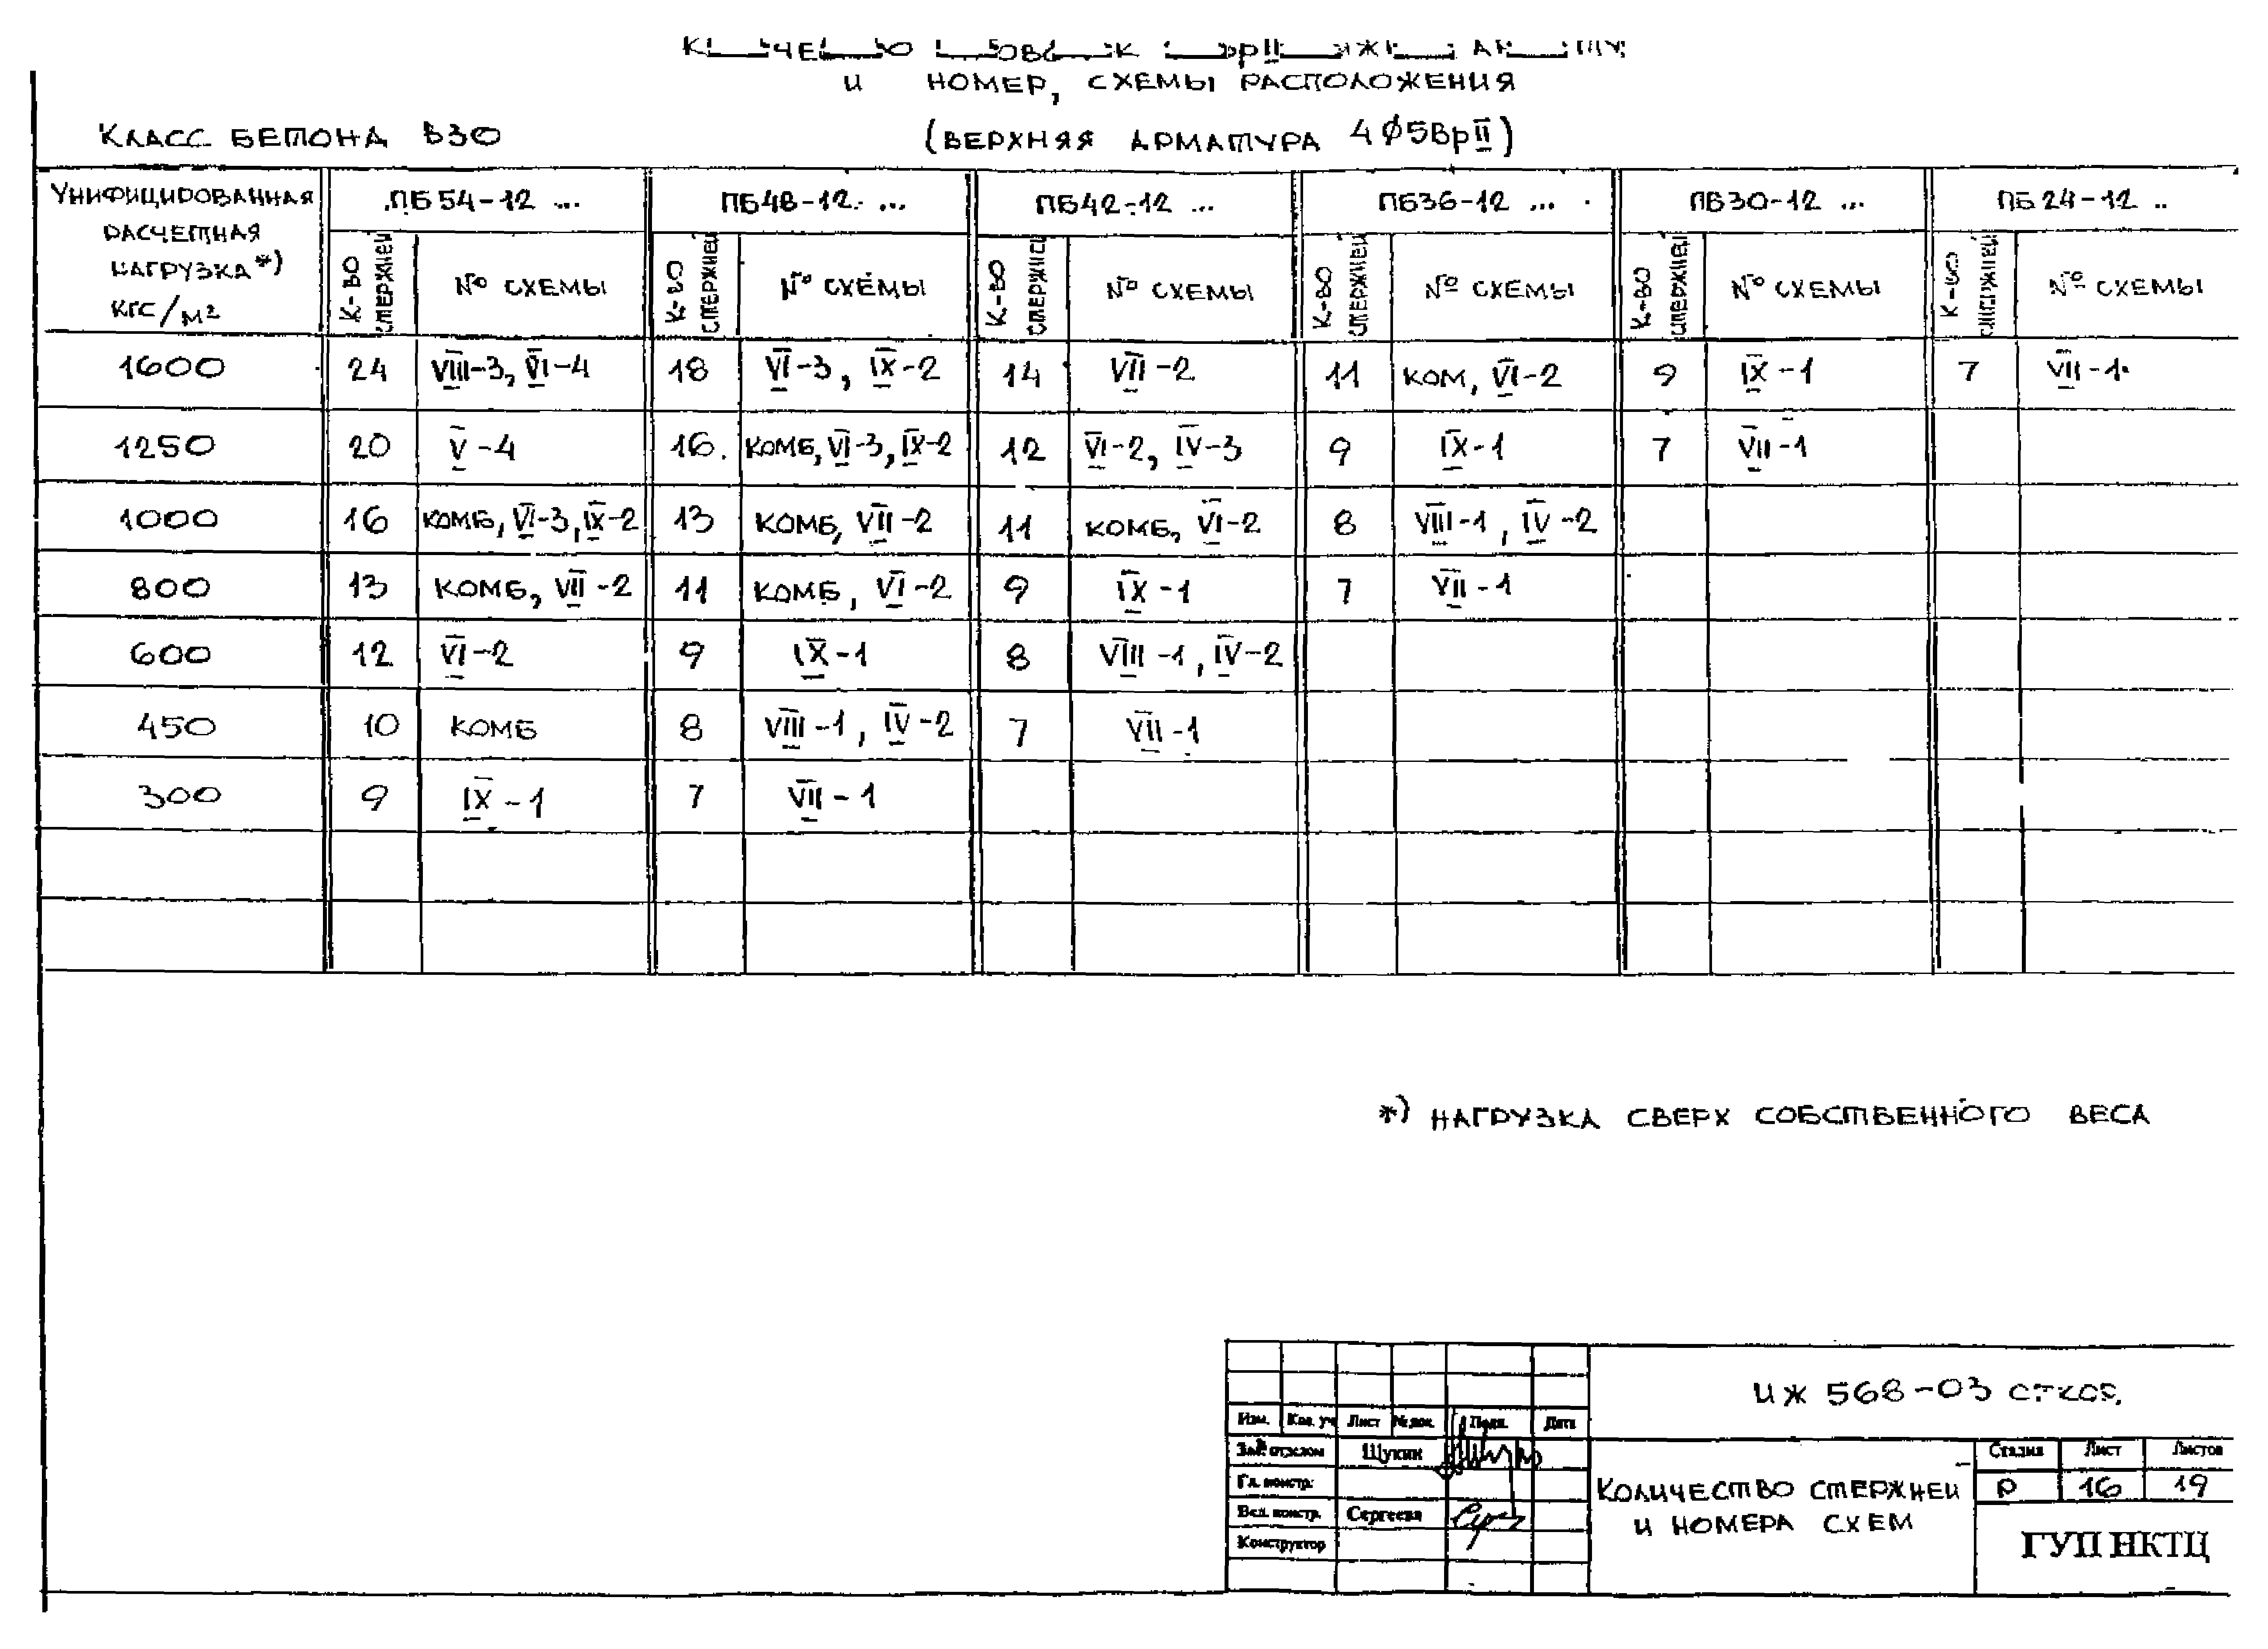 и НОМЕР, СХЕМЫ РАСПОЛОЖЕНИЯ
КЛАСС БЕТОНА В30 (ВЕРХНЯЯ АРМАТУРА 4 Ø5ВрII)
УНИФИЦИРОВАННАЯ РАСЧЕТНАЯ НАГРУЗКА *) КГС/М² ПБ 54-12 ... ПБ48-12 ... ПБ42-12 ... ПБ36-12 ... ПБ30-12 ... ПБ 24-12 ..
К-ВО СТЕРЖНЕЙ № СХЕМЫ К-ВО СТЕРЖНЕЙ № СХЕМЫ К-ВО СТЕРЖНЕЙ № СХЕМЫ К-ВО СТЕРЖНЕЙ № СХЕМЫ К-ВО СТЕРЖНЕЙ № СХЕМЫ К-ВО СТЕРЖНЕЙ № СХЕМЫ
1600 24 VIII-3, VI-4 18 VI-3, IX-2 14 VII-2 11 КОМ, VI-2 9 IX-1 7 VII-1
1250 20 V-4 16 КОМБ, VI-3, IX-2 12 VI-2, IV-3 9 IX-1 7 VII-1
1000 16 КОМБ, VI-3, IX-2 13 КОМБ, VII-2 11 КОМБ, VI-2 8 VIII-1, IV-2
800 13 КОМБ, VII-2 11 КОМБ, VI-2 9 IX-1 7 VII-1
600 12 VI-2 9 IX-1 8 VIII-1, IV-2
450 10 КОМБ 8 VIII-1, IV-2 7 VII-1
300 9 IX-1 7 VII-1
*) НАГРУЗКА СВЕРХ СОБСТВЕННОГО ВЕСА
ИЖ 568-03
Изм. Кол. уч Лист № док. Подп. Дата
Зав. отделом Щукин
Гл. констр.
Вед. констр. Сергеева
Конструктор
КОЛИЧЕСТВО СТЕРЖНЕЙ
И НОМЕРА СХЕМ
Стадия Лист Листов
Р 16 19
ГУП НКТЦ